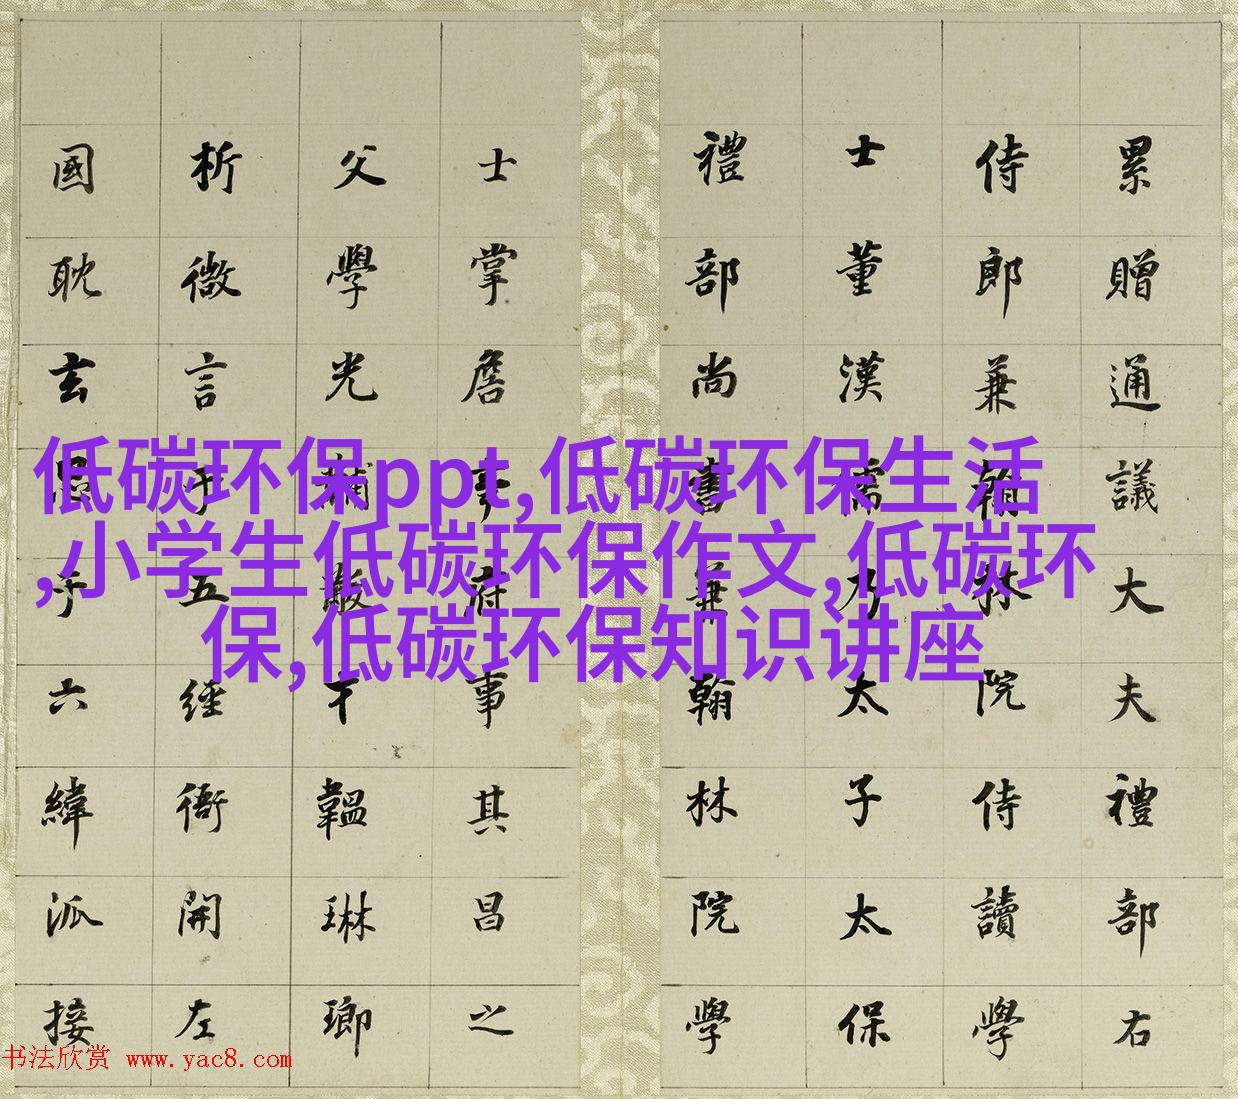 累贈通議大夫禮部右
侍郎兼翰林院侍讀學
士董漢儒乃太子太保
禮部尚書兼翰林院學
士掌詹事府事其昌之
父學光韞琳瑯
析微言于五經開左
國耽玄思于六緯派接
低碳环保ppt,低碳环保生活
,小学生低碳环保作文,低碳环
保,低碳环保知识讲座
书法欣赏 www.yac8.com